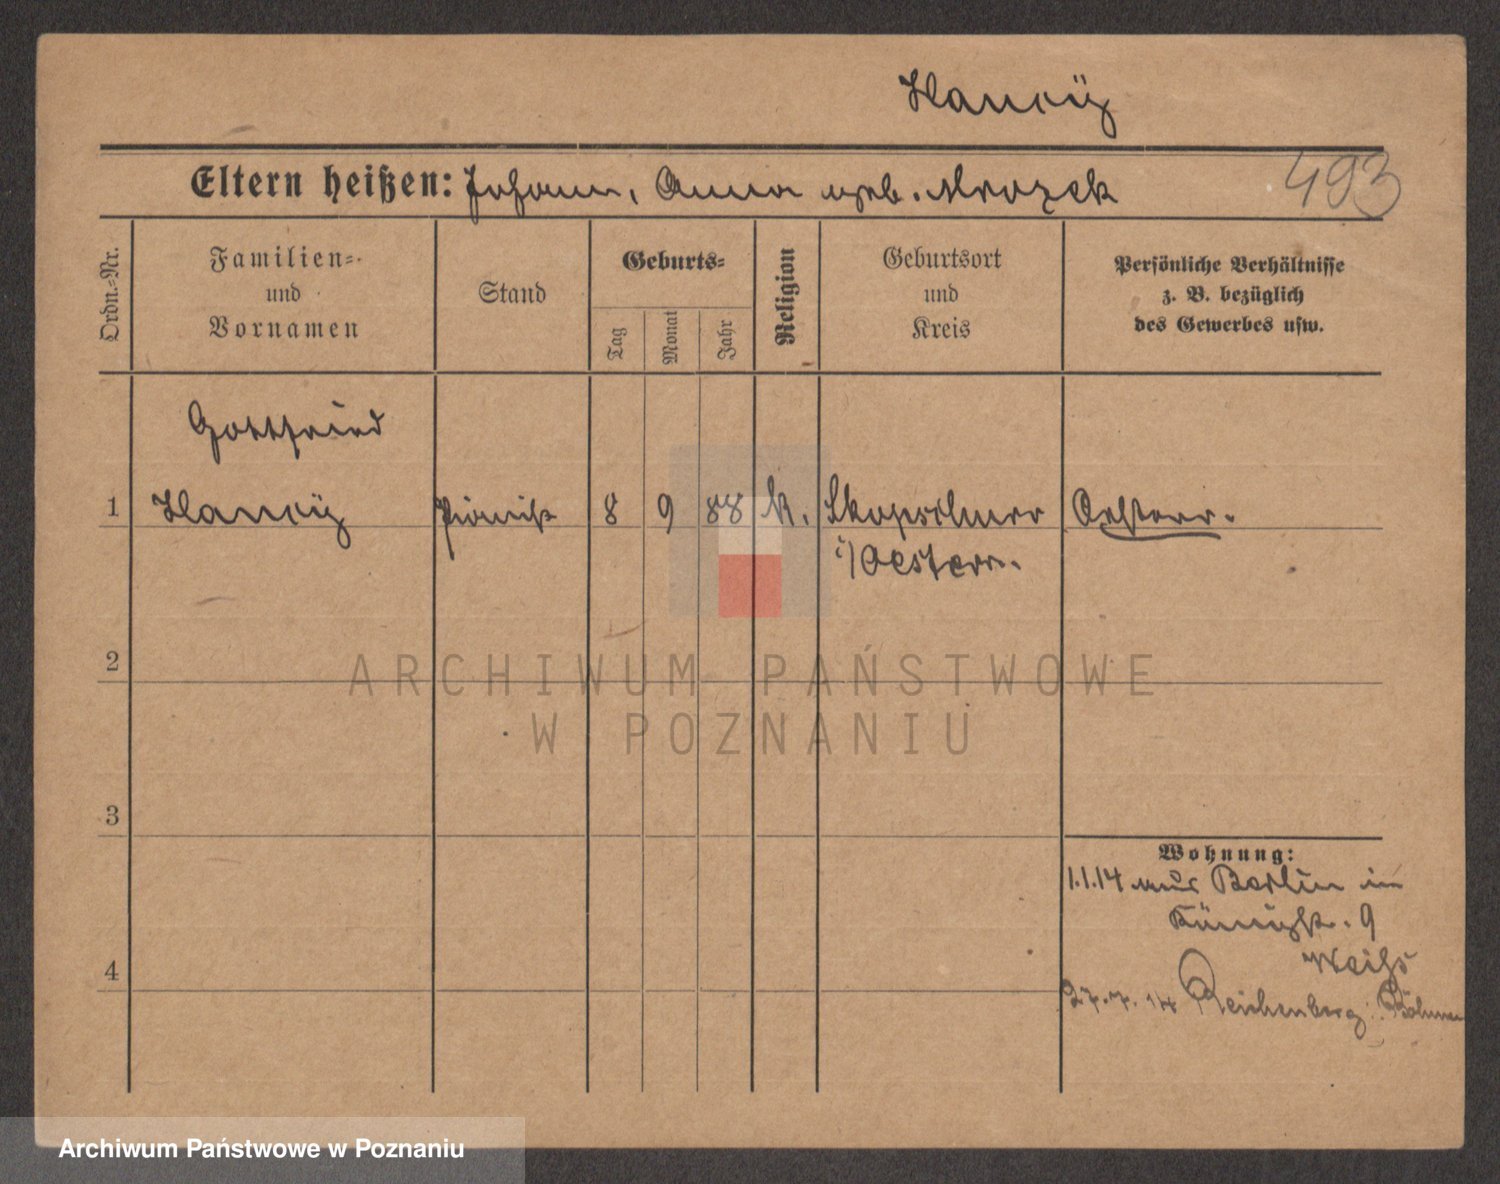 493
Eltern heißen: Johann, Anna geb. Mrozek
Ordn.=Nr.
Familien=
und
Vornamen
Stand
Geburts=
Tag
Monat
Jahr
Religion
Geburtsort
und
Kreis
Persönliche Verhältnisse
z. B. bezüglich
des Gewerbes usw.
Gottfried
1 8 9 88 k. Oesterr.
i/Oesterr.
2
3
4
Wohnung:
1.1.14 aus Berlin in
Königstr. 9
Weihs
27.7.14 Reichenberg i. Böhmen
ARCHIWUM PAŃSTWOWE
W POZNANIU
Archiwum Państwowe w Poznaniu